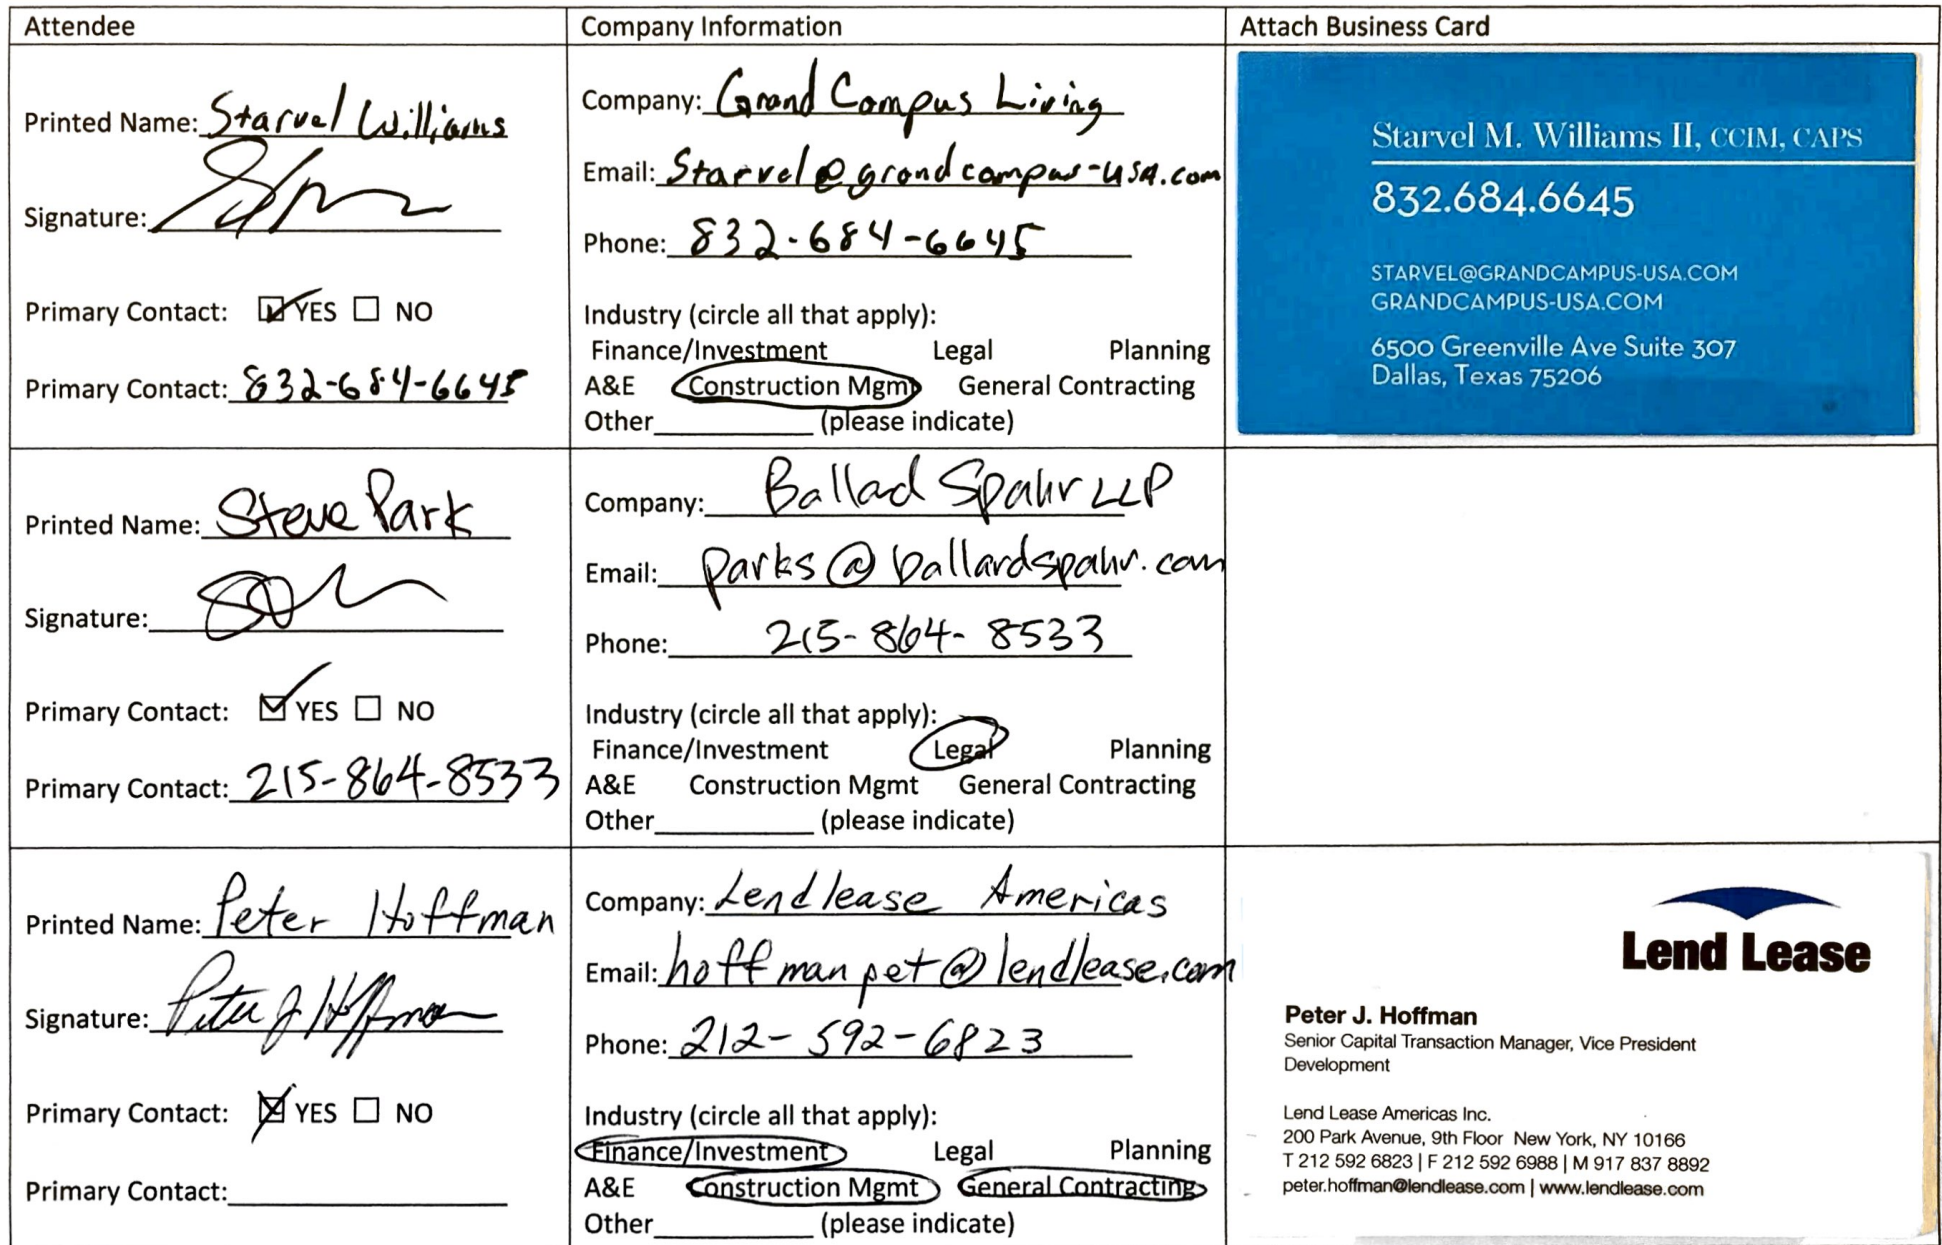 Attendee
Company Information
Attach Business Card
Printed Name: Starvel Williams
Signature:
Primary Contact: YES NO
Primary Contact: 832-684-6645
Company: Grand Campus Living
Email: Starvel@grandcampus-USA.com
Phone: 832-684-6645
Industry (circle all that apply):
Finance/Investment Legal Planning
A&E Construction Mgmt General Contracting
Other____________(please indicate)
Starvel M. Williams II, CCIM, CAPS
832.684.6645
STARVEL@GRANDCAMPUS-USA.COM
GRANDCAMPUS-USA.COM
6500 Greenville Ave Suite 307
Dallas, Texas 75206
Printed Name: Steve Park
Signature:
Primary Contact: YES NO
Primary Contact: 215-864-8533
Company: Ballad Spahr LLP
Email: parks@ballardspahr.com
Phone: 215-864-8533
Industry (circle all that apply):
Finance/Investment Legal Planning
A&E Construction Mgmt General Contracting
Other____________(please indicate)
Printed Name: Peter Hoffman
Signature: Peter J Hoffman
Primary Contact: YES NO
Primary Contact:
Company: Lendlease Americas
Email: hoffmanpet@lendlease.com
Phone: 212-592-6823
Industry (circle all that apply):
Finance/Investment Legal Planning
A&E Construction Mgmt General Contracting
Other____________(please indicate)
Lend Lease
Peter J. Hoffman
Senior Capital Transaction Manager, Vice President
Development
Lend Lease Americas Inc.
200 Park Avenue, 9th Floor New York, NY 10166
T 212 592 6823 | F 212 592 6988 | M 917 837 8892
peter.hoffman@lendlease.com | www.lendlease.com